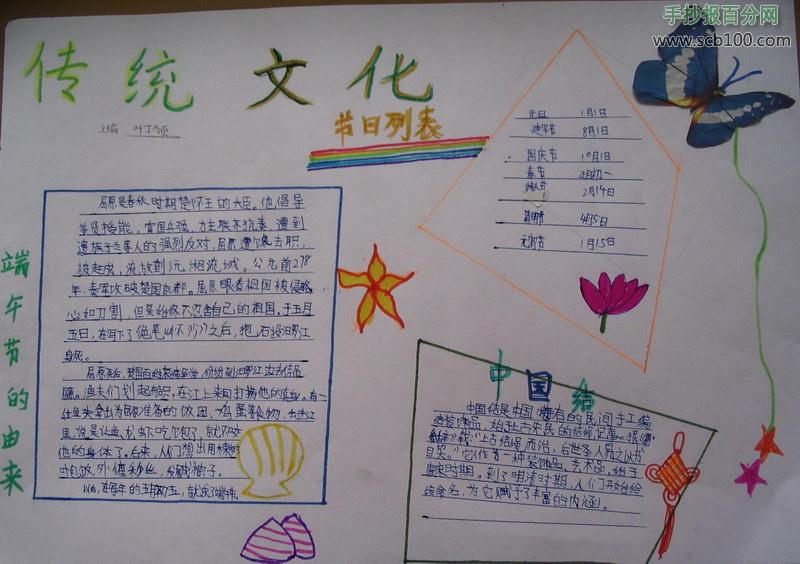 手抄报百分网
www.scb100.com
传统文化
节日列表
元旦 1月1日
建军节 8月1日
国庆节 10月1日
春节 正月初一
情人节 2月14日
清明节 4月5日
元宵节 1月15日
端午节的由来
屈原是春秋时期楚怀王的大臣。他倡导
举贤授能，富国强兵，力主联齐抗秦，遭到
遭贵族子兰等人的强烈反对，屈原遭馋去职，
被赶出，流放到沅、湘流域。公元前278
年，秦军攻破楚国京都。屈原眼看祖国被侵略，
心如刀割，但是始终不忍舍自己的祖国，于五月
五日，在写下了绝笔《怀沙》之后，抱石投汨罗江
身死。
屈原死后，楚国百姓哀痛异常，纷纷到汨罗江边去吊
屈。渔夫们划起船只，在江上来回打捞他的真身。有一
位渔夫拿出为屈原准备的饭团、鸡蛋等食物，丢进江
里，说是让鱼龙虾吃饱了，就不咬
他的身体了。后来，人们想出用楝树
叶包饭，外缠彩丝，发展棕子。
以后，在每年的五月初五，就成了端午节
中国结
中国结是中国特有的民间手工编
结装饰品，始于上古先民的结绳记事。据《
易》载："上古结绳而治，后世圣人易之以书
目契。"它作为一种装饰品、艺术品，始于
唐宋时期。到了明清时期，人们开始给
结命名，为它赋予了丰富的内涵。